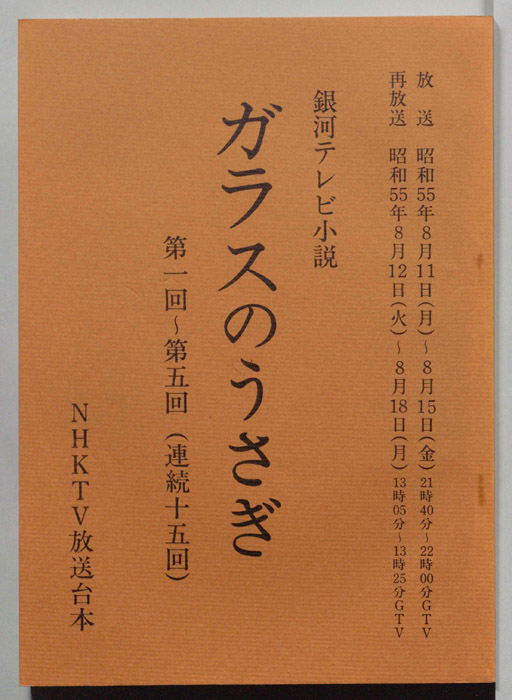 放　送　昭和55年8月11日(月)～8月15日(金)21時40分～22時00分GTV
再放送　昭和55年8月12日(火)～8月18日(月)13時05分～13時25分GTV
銀河テレビ小説
ガラスのうさぎ
第一回～第五回（連続十五回）
NHKTV放送台本